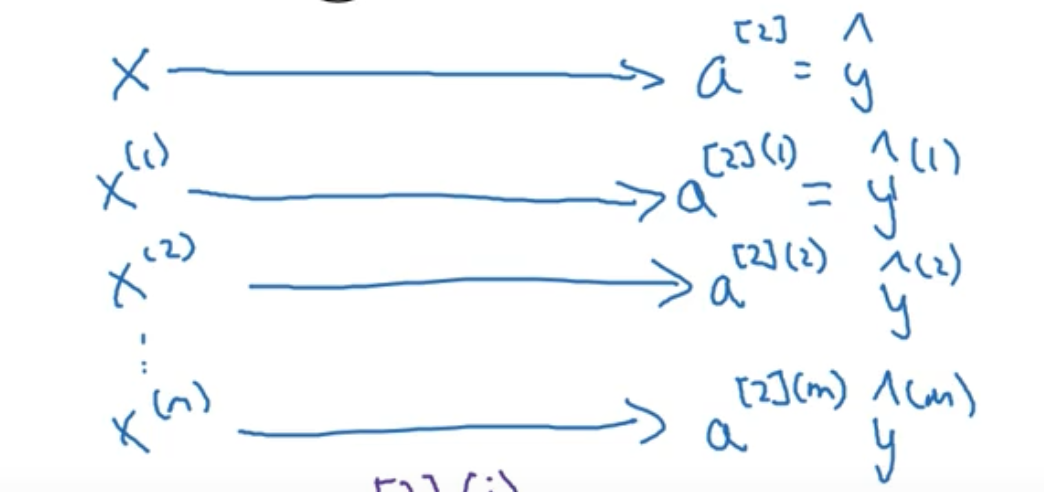 x ⟶ a^[2] = ŷ
x^(1) ⟶ a^[2](1) = ŷ^(1)
x^(2) ⟶ a^[2](2) ŷ^(2)
⋮
x^(m) ⟶ a^[2](m) ŷ^(m)